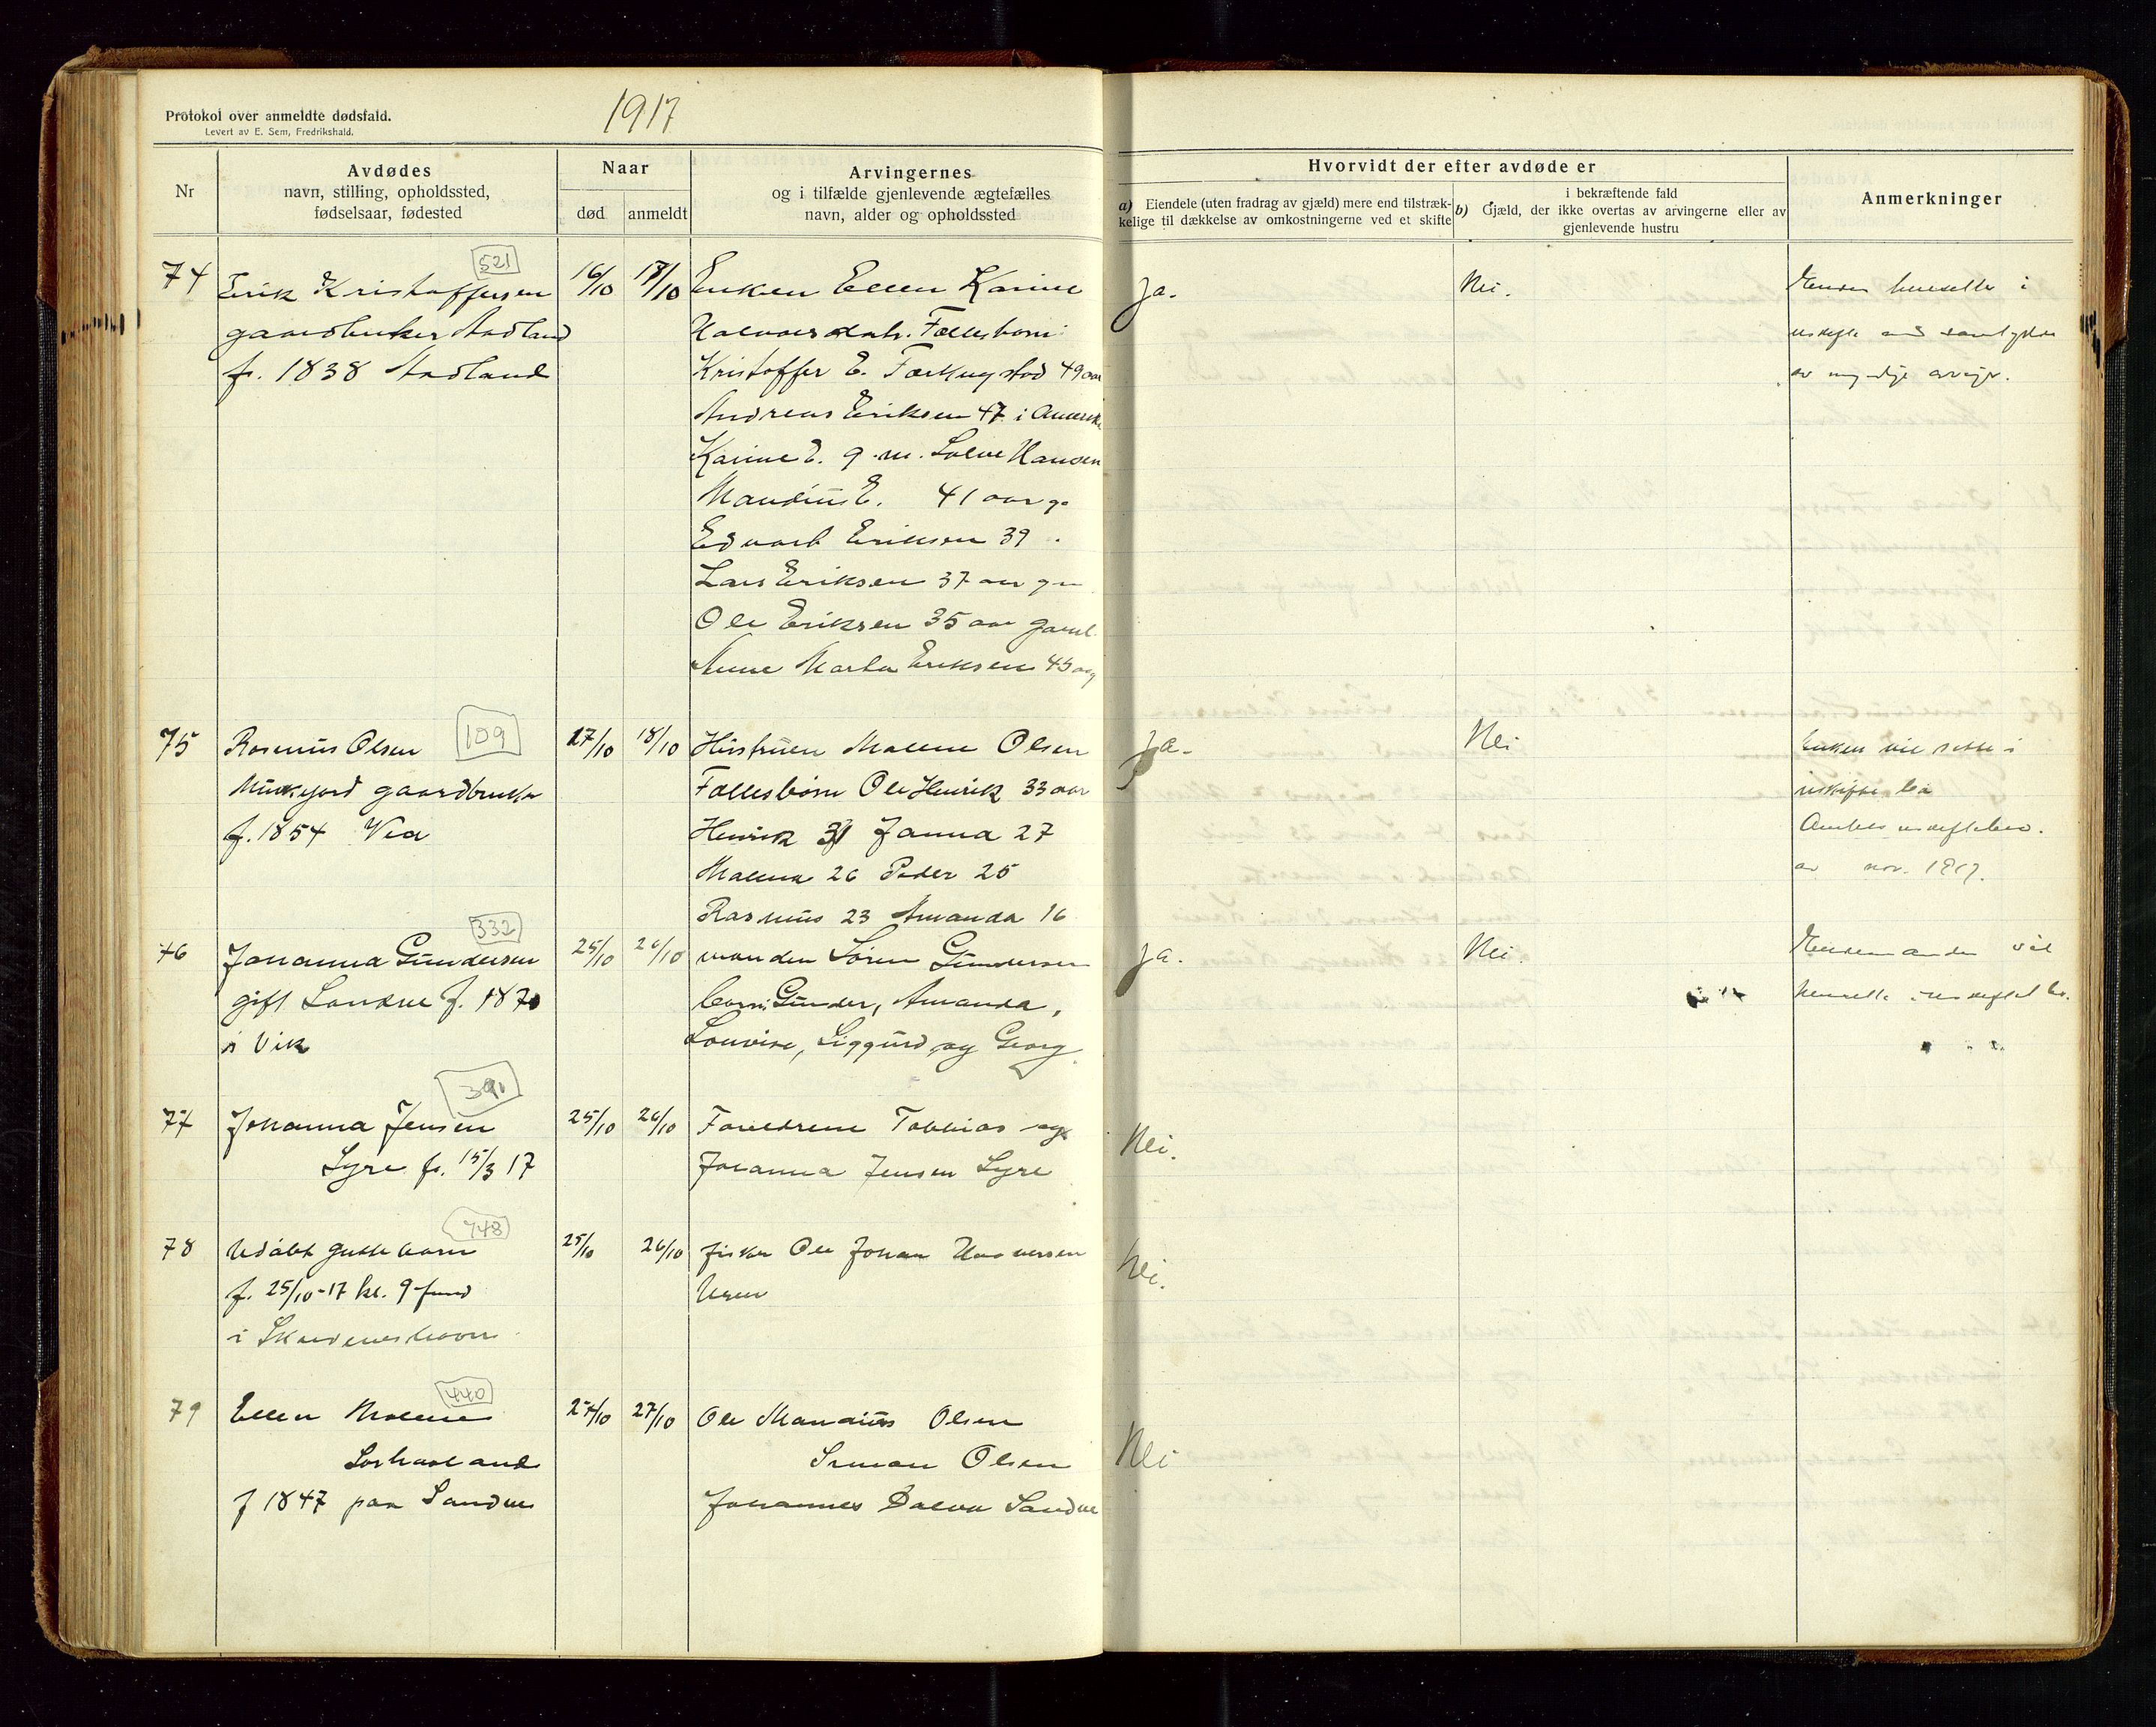 Protokol over anmeldte dødsfald.
Levert av E. Sem, Fredrikshald.
1917
Nr
Avdødes
navn, stilling, opholdssted,
fødselsaar, fødested
Naar
død
anmeldt
Arvingernes
og i tilfælde gjenlevende ægtefælles
navn, alder og opholdssted
Hvorvidt der efter avdøde er
a) Eiendele (uten fradrag av gjæld) mere end tilstræk-
kelige til dækkelse av omkostningerne ved et skifte
i bekræftende fald
b) Gjæld, der ikke overtas av arvingerne eller av
gjenlevende hustru
Anmerkninger
521
74 Erik Kristoffersen 16/10 17/10 Enken Ellen Karine Ja. Nei.
gaardbruker Stadland
f. 1838 Stadland
Halvorsdatr. Fællesbørn:
Kristoffer E. Færkingstad 49 aar
Andreas Eriksen 47 i Amerika
Karine E. g. m. Hansen
Mandius E. 41 aar g.
Edvard Eriksen 39
Lars Eriksen 37 aar gm
Ole Eriksen 35 aar gaml.
Anne Marta Eriksen 45 aar g
109
75 Rasmus Olsen 17/10 18/10 Hustruen Malene Olsen Ja. Nei Enken vil sitte i
Munkejord gaardbruker
f. 1854 Vea
Fællesbørn Ole Henrik 33 aar
Henrik 31 Janna 27
Malena 26 Peder 25
Rasmus 23 Amanda 16
uskifte
uskiftebev.
av nov. 1917.
332
76 Johanna Gundersen 25/10 26/10 manden Søren Gundersen Ja. Nei. Enkemanden vil
gift Sandve f. 1870
i Vik
børn: Gunder, Amanda,
Louvise, Siggurd og Georg
391
77 Johanna Jensen 25/10 26/10 Foreldrene Tobbias og Nei.
Syre f. 15/3 17
Johanna Jensen Syre
748
78 Udøbt guttebarn 25/10 26/10 fisker Ole Johan Nei.
f. 25/10-17 kl. 9 fmd
i Skudeneshavn
440
79 Ellen Malene 24/10 27/10 Ole Mandius Olsen Nei
Sørhaaland
f 1847 paa Sandve
Simon Olsen
Johannes Sandve